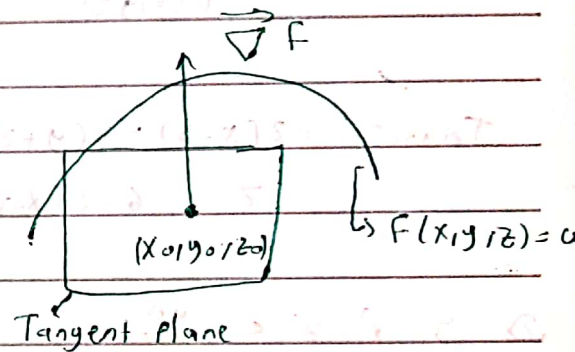 ∇ F
(x₀,y₀,z₀)
F(x,y,z) = 0
Tangent plane